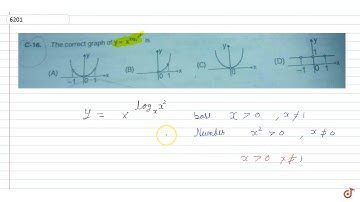 6201
C-16. The correct graph of y = x^{log_x x^2} is
(A) y x -1 0 1
(B) y x 0 1
(C) y x 0
(D) y 1 x -1 0 1
y = x^{log_x x^2} base x > 0 , x ≠ 1
Number x^2 > 0 , x ≠ 0
x > 0 x ≠ 1